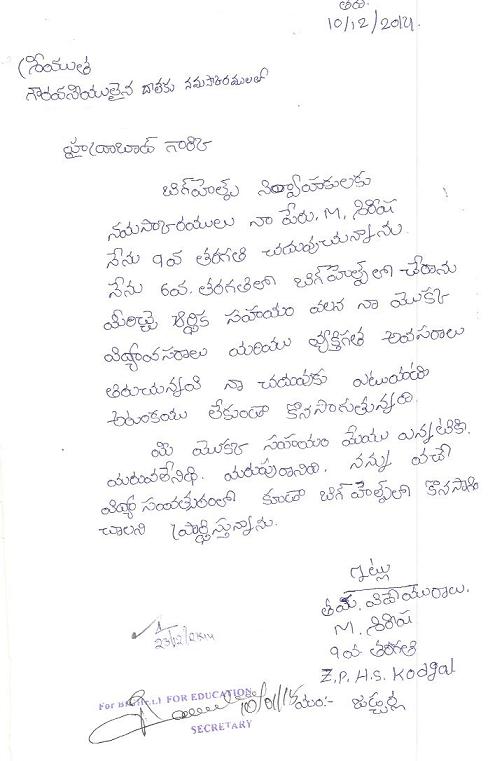 తేది.
10/12/2014.
శ్రీయుత
గౌరవనీయులైన దాతకు నమస్కారములతో
హైద్రాబాద్ గారికి
బిగ్‌హెల్ప్ నిర్వాహకులకు
నమస్కారములు నా పేరు. M. శిరీష
నేను 9వ తరగతి చదువుచున్నాను.
నేను 6వ. తరగతిలో బిగ్‌హెల్ప్‌లో చేరాను
మీరిచ్చే ఆర్థిక సహాయం వలన నా మొక్క
విద్యావసరాలు మరియు వ్యక్తిగత అవసరాలు
తీరుచున్నవి నా చదువుకు ఎటువంటి
ఆటంకము లేకుండా కొనసాగుతున్నది.
మీ మొక్క సహాయం మేము ఎన్నటికి.
మరువలేనిది. మరుపురానిది. నన్ను వచ్చే
విద్యా సంవత్సరంలో కూడా బిగ్ హెల్ప్‌లో కొనసాగిం
చాలని ప్రార్థిస్తున్నాను.
ఇట్లు
తమ. విధేయురాలు.
M. శిరీష
9వ తరగతి
Z.P.H.S. Kodgal
జడ్చర్ల
23/12/2014
For BIGHELP FOR EDUCATION
10/01/15
SECRETARY